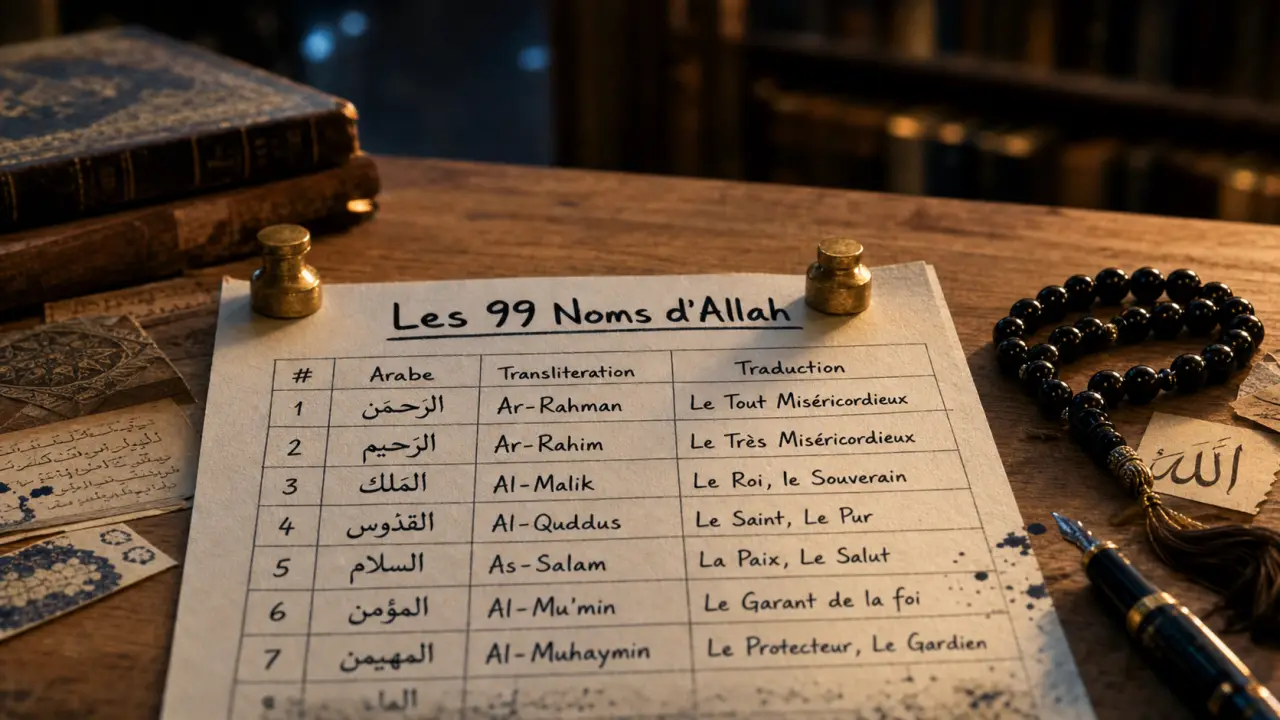 Les 99 Noms d'Allah
# Arabe Transliteration Traduction
1 الرَحمَن Ar-Rahman Le Tout Miséricordieux
2 الرَحيم Ar-Rahim Le Très Miséricordieux
3 المَلك Al-Malik Le Roi, le Souverain
4 القدُوس Al-Quddus Le Saint, Le Pur
5 السلام As-Salam La Paix, Le Salut
6 المؤمن Al-Mu'min Le Garant de la foi
7 المهيمن Al-Muhaymin Le Protecteur, Le Gardien
8
اللَّه